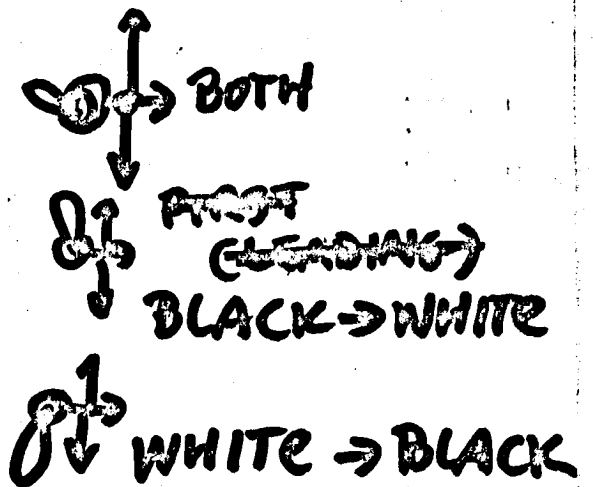 BOTH
FIRST
(LEADING)
BLACK → WHITE
WHITE → BLACK